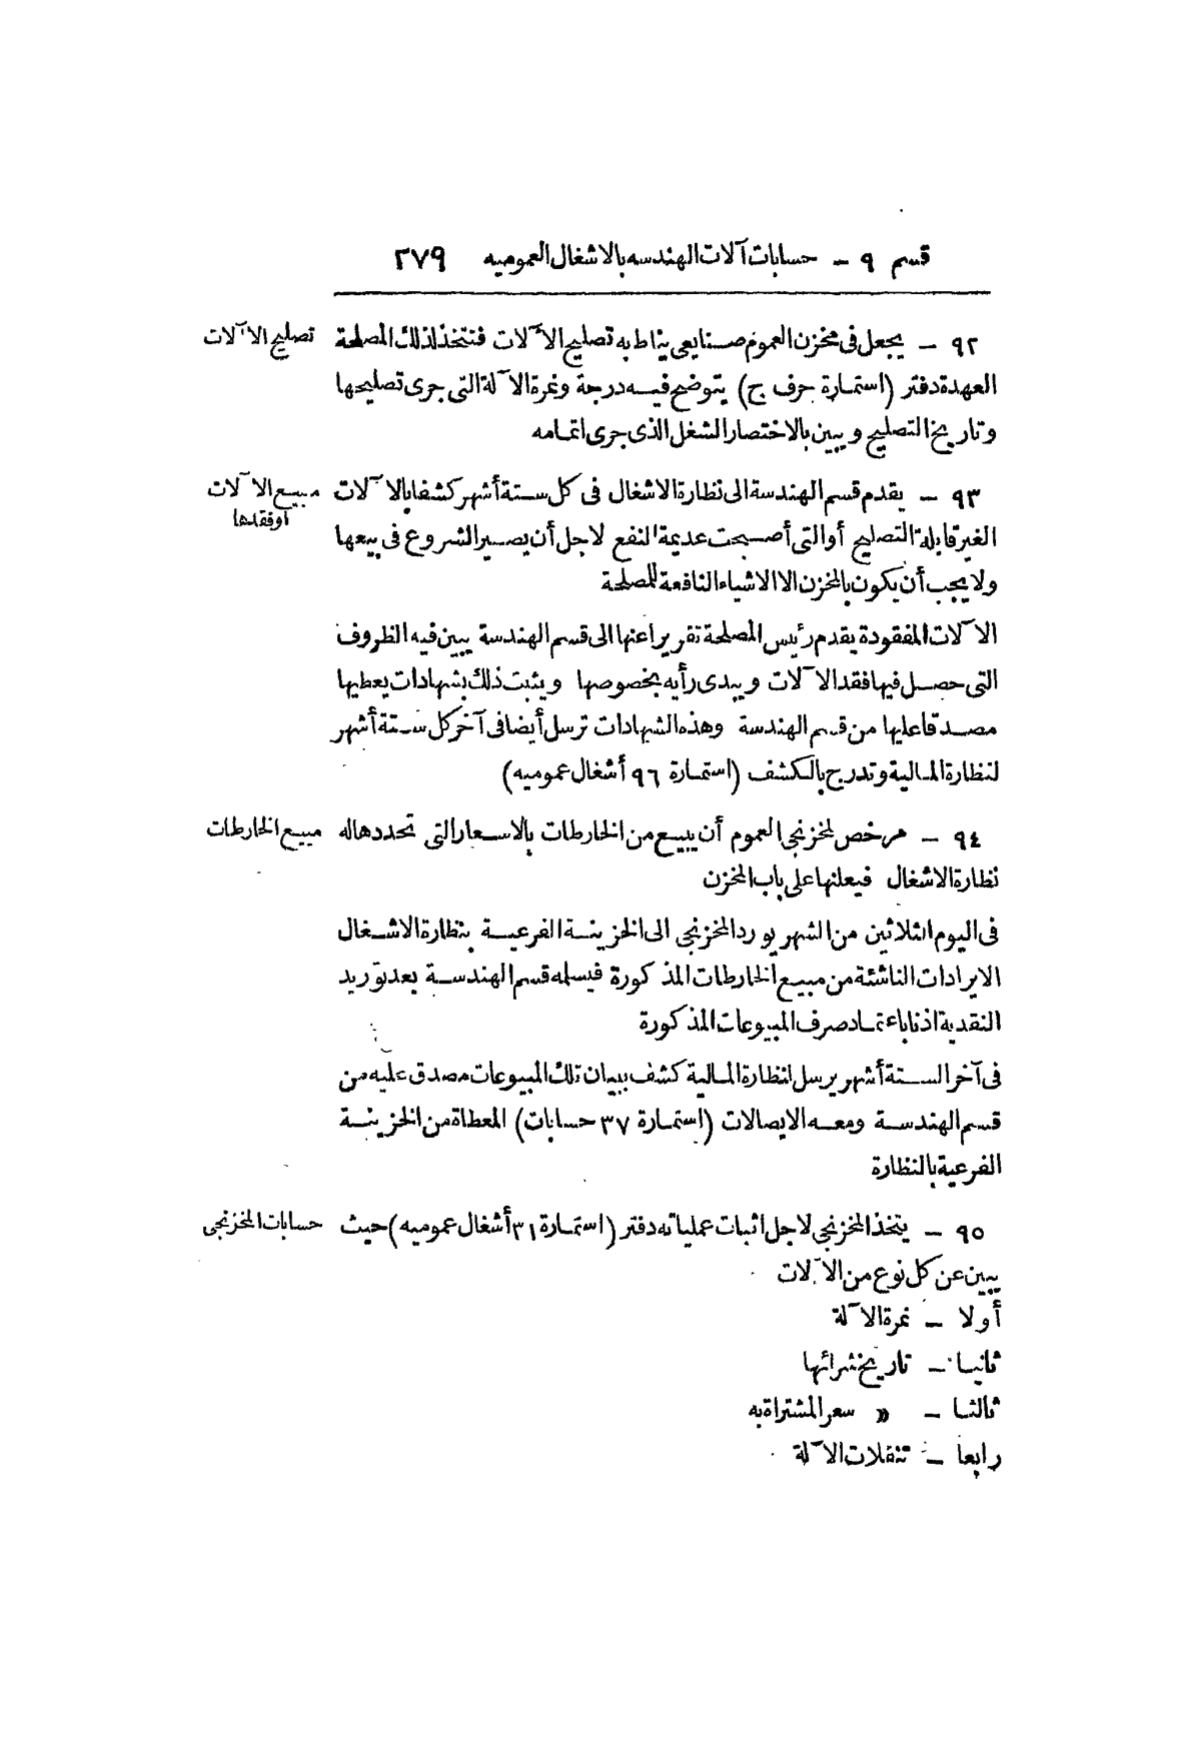 قسم ٩ – حسابات آلات الهندسه بالاشغال العموميه ٢٧٩
٩٢ – يجعل فى مخزن العموم صنايعى يناط به تصليح الآلات فتتخذ لذلك المصلحة
تصليح الآلات
العهدة دفتر (استمارة حرف ج) يتوضح فيه درجة ونمرة الآلة التى جرى تصليحها
وتاريخ التصليح ويبين بالاختصار الشغل الذى جرى اتمامه
٩٣ – يقدم قسم الهندسة الى نظارة الاشغال فى كل ستة أشهر كشفا بالآلات
مبيع الآلات
أوفقدها
الغير قابلة التصليح أوالتى أصبحت عديمة النفع لاجل أن يصير الشروع فى بيعها
ولا يجب أن يكون بالمخزن الا الاشياء النافعة للمصلحة
الآلات المفقودة يقدم رئيس المصلحة تقريرا عنها الى قسم الهندسة يبين فيه الظروف
التى حصل فيها فقد الآلات ويبدى رأيه بخصوصها ويثبت ذلك بشهادات يعطيها
مصدقا عليها من قسم الهندسة وهذه الشهادات ترسل أيضا فى آخر كل ستة أشهر
لنظارة المالية وتدرج بالكشف (استمارة ٩٦ أشغال عموميه)
٩٤ – مرخص لمخزنجى العموم أن يبيع من الخارطات بالاسعار التى تحددها له
مبيع الخارطات
نظارة الاشغال فيعلنها على باب المخزن
فى اليوم الثلاثين من الشهر يورد المخزنجى الى الخزينة الفرعية بنظارة الاشغال
الايرادات الناشئة من مبيع الخارطات المذكورة فيسلمه قسم الهندسة بعد توريد
النقدية اذنا باعتماد صرف المبيوعات المذكورة
فى آخر الستة أشهر يرسل لنظارة المالية كشف ببيان تلك المبيوعات مصدق عليه من
قسم الهندسة ومعه الايصالات (استمارة ٣٧ حسابات) المعطاة من الخزينة
الفرعية بالنظارة
٩٥ – يتخذ المخزنجى لاجل اثبات عملياته دفتر (استمارة ٣١ أشغال عموميه) حيث
حسابات المخزنجى
يبين عن كل نوع من الآلات
أولا – نمرة الآلة
ثانيا – تاريخ شرائها
ثالثا – » سعر المشتراة به
رابعا – تنقلات الآلة